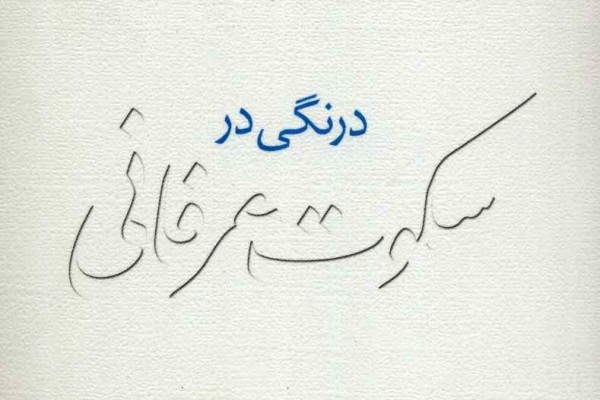 درنگی در
سکوت عرفانی